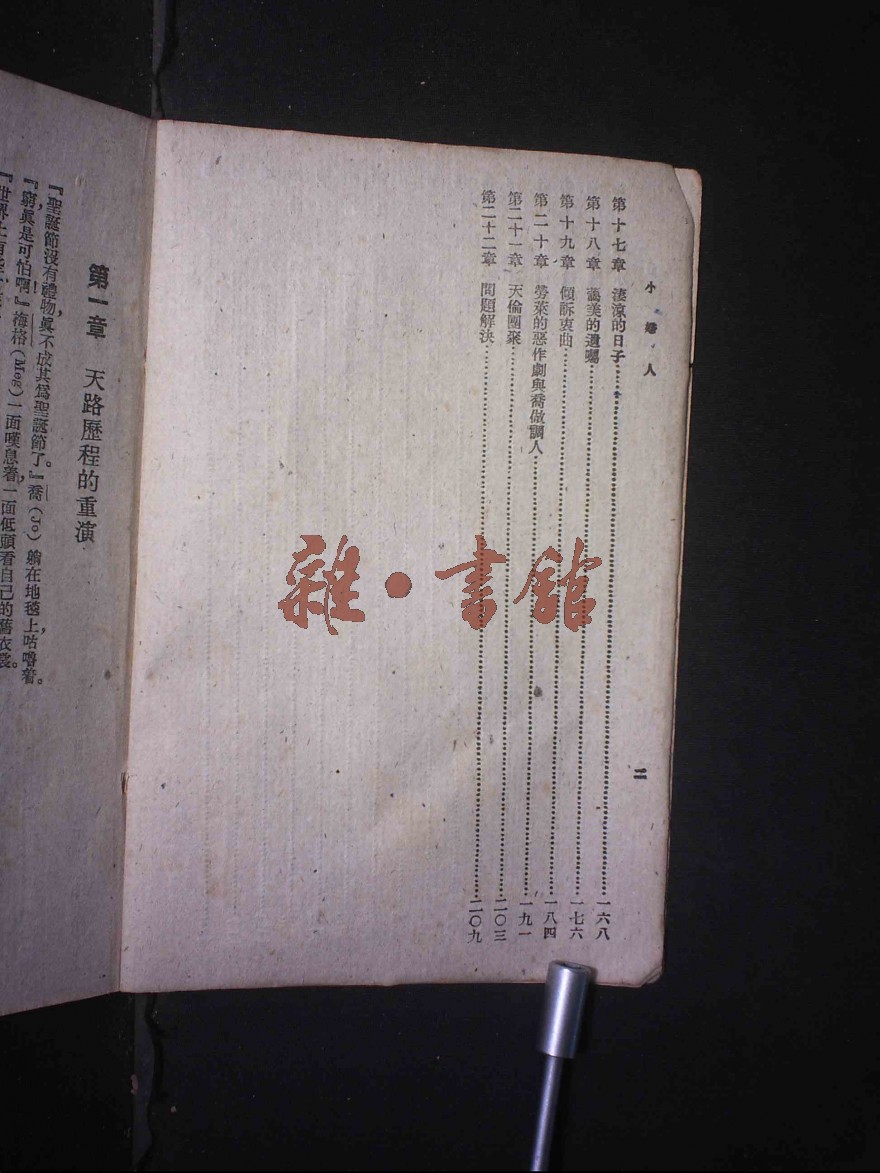 小婦人
第十七章 淒涼的日子 一六八
第十八章 藹美的遺囑 一七六
第十九章 傾訴衷曲 一八四
第二十章 勞萊的惡作劇與喬做調人 一九一
第二十一章 天倫團聚 二〇三
第二十二章 問題解決 二〇九
二
第一章 天路歷程的重演
『聖誕節沒有禮物,眞不成其爲聖誕節了。』喬(Jo)躺在地毯上咕嚕着。
『窮眞是可怕啊!』梅格(Meg)一面嘆息着,一面低頭看自己的舊衣裳。
雜·書館